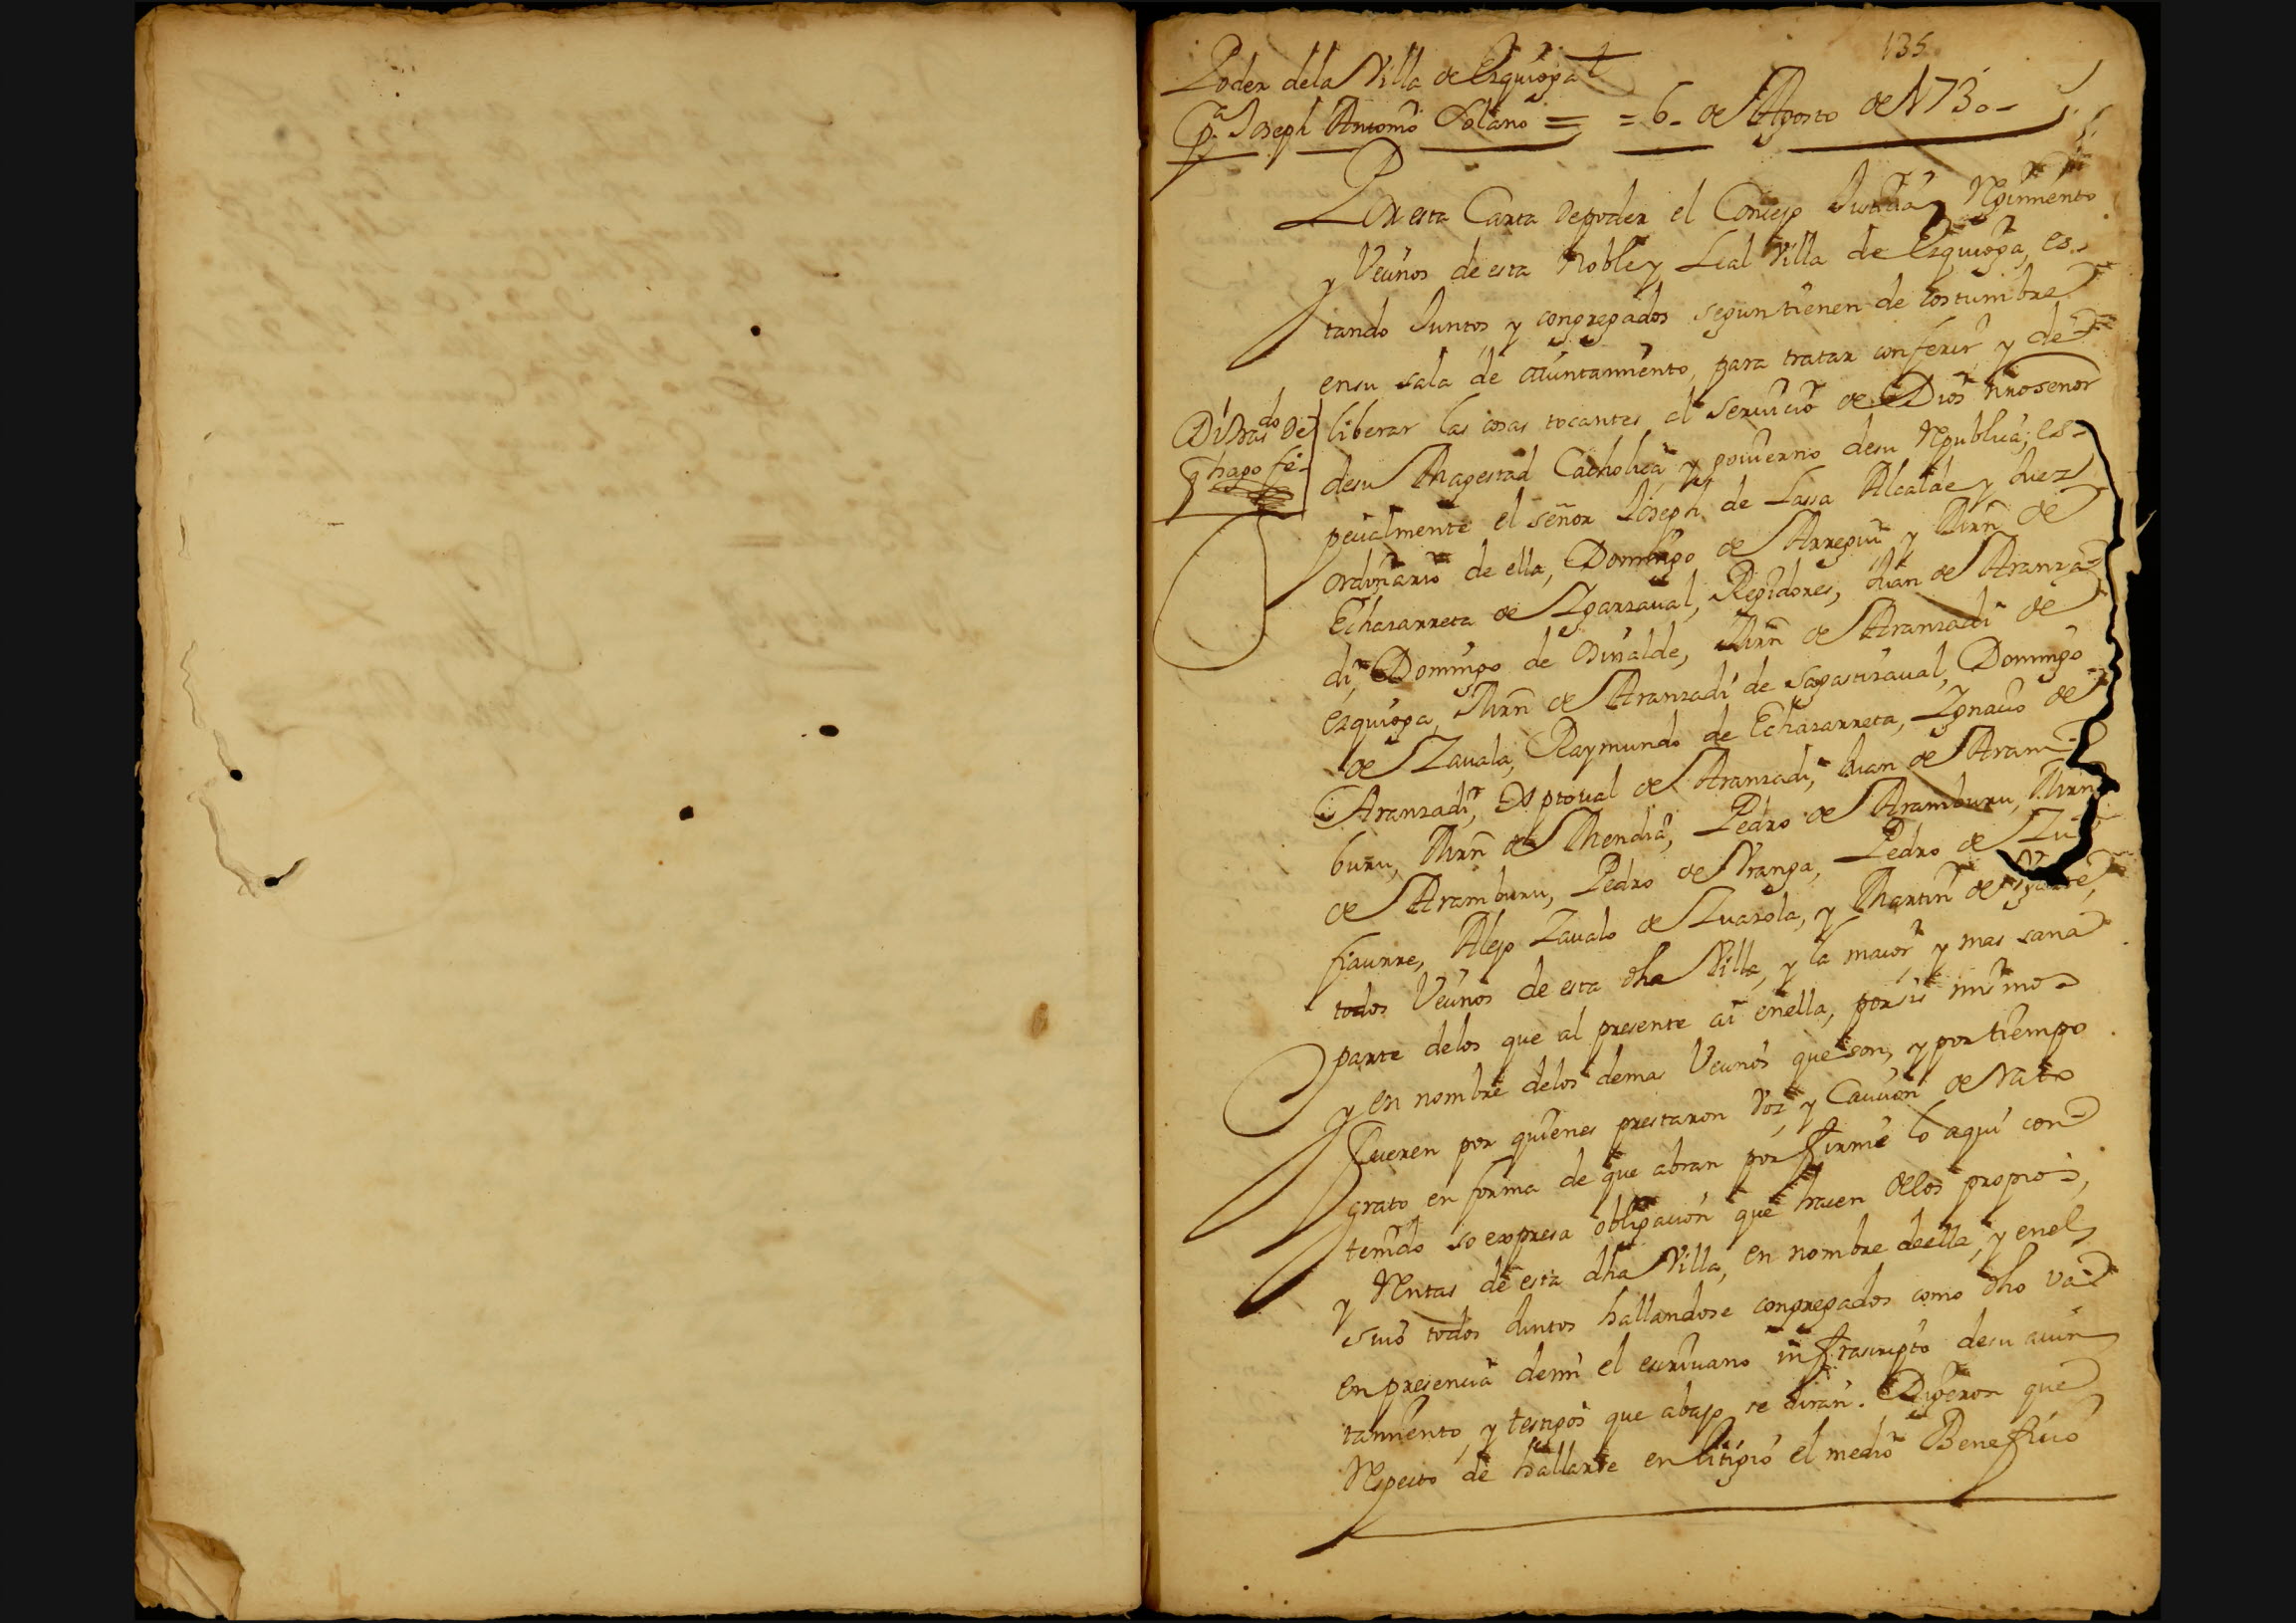 135
Poder dela Villa de Ezquioga
pª Joseph Antonio Solano = = 6- de Agosto de 1730-
Por esta Carta de poder el Concejo Justicia y Regimiento
y Vecinos de esta Noble y Leal Villa de Ezquioga, es-
tando Juntos y congregados segun tienen de costumbre
en su sala de aiuntamiento, para tratar conferir y de-
liberar las cosas tocantes al servicio de Dios nro señor
de su Magestad Catholica y govierno de su Republica; es-
pecialmente el señor Joseph de Lassa Alcalde y Juez
ordinario de ella, Domingo de Arregui y Mrn de
Echazarreta de Igarzaval, Regidores, Juan de Aranza-
di, Domingo de Oiñalde, Mrn de Aranzadi de
Ezquioga, Mrn de Aranzadi de Sagastizaval, Domingo
de Zavala, Raymundo de Echazarreta, Ignacio de
Aranzadi, Xptoval de Aranzadi, Juan de Aram-
buru, Mrn de Mendia, Pedro de Aramburu, Mrn
de Aramburu, Pedro de Vranga, Pedro de Zu-
fiaurre, Alejo Zavalo de Zuazola, y Martin de
todos Vecinos de esta dha Villa, y la maior y mas sana
parte delos que al presente ai en ella, por si mismo
y en nombre delos demas Vecinos que son, y por tiempo
fueren por quienes prestaron voz y Caucion de rato
grato en forma de que abran por firme lo aqui con
tenido so expresa obligacion que hacen delos propios,
y Rentas de esta dha Villa, en nombre de ella, y en el
suio todos Juntos hallandose congregados como dho va
en presencia de mi el escrivano infrascripto de su aiun
tamiento, y testigos que abajo se diran. Digeron que
Respecto de hallarse en litigio el medio Beneficio